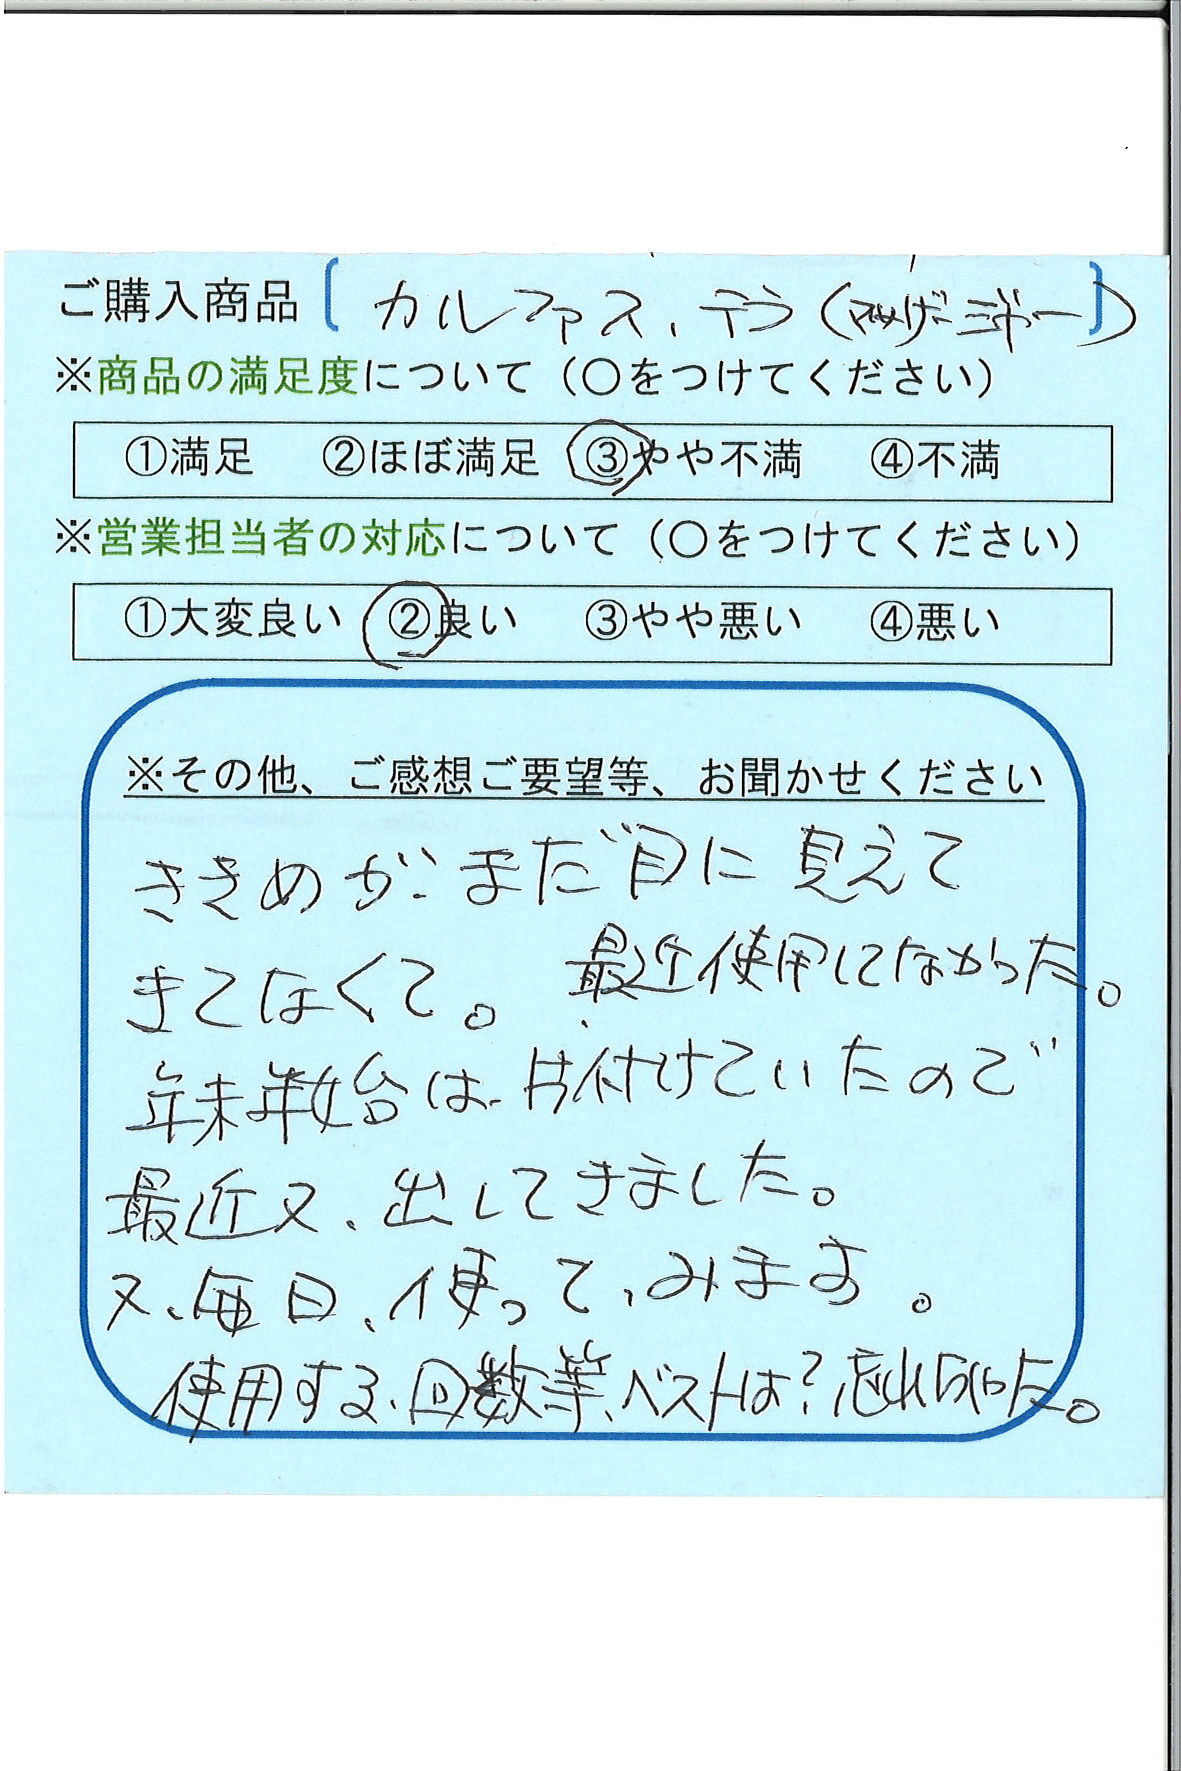 ご購入商品〔カルファス、テラ（
※商品の満足度について（○をつけてください）
①満足 ②ほぼ満足 ③やや不満 ④不満
※営業担当者の対応について（○をつけてください）
①大変良い ②良い ③やや悪い ④悪い
※その他、ご感想ご要望等、お聞かせください
ききめが、まだ目に見えて
きてなくて。最近使用してなかった。
年末年始は、片付けていたので
最近又、出してきました。
又、毎日、使って、みます。
使用する、回数等、ベストは？忘れちゃった。